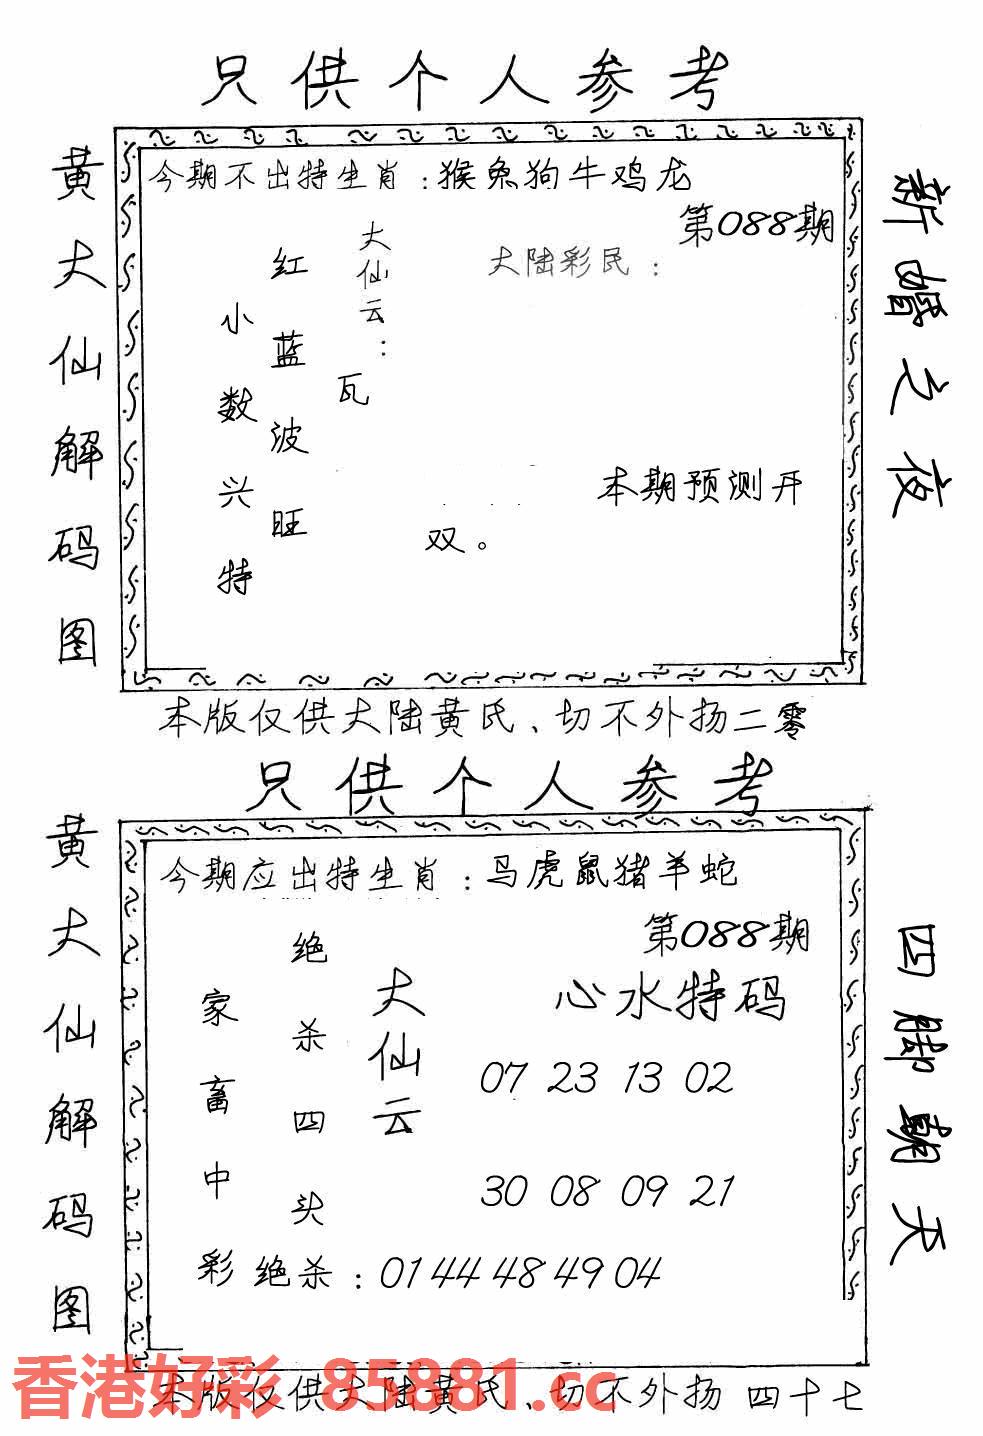 只供个人参考
黄大仙解码图
今期不出特生肖：猴兔狗牛鸡龙
第088期
大陆彩民：
大仙云：
瓦
红蓝波旺
小数兴特
本期预测开
双。
新婚之夜
本版仅供大陆黄氏、切不外扬二零
只供个人参考
黄大仙解码图
今期应出特生肖：马虎鼠猪羊蛇
第088期
心水特码
大仙云
绝杀四头
家畜中彩
07 23 13 02
30 08 09 21
绝杀：01 44 48 49 04
四脚朝天
本版仅供大陆黄氏、切不外扬 四十七
香港好彩 85881.cc